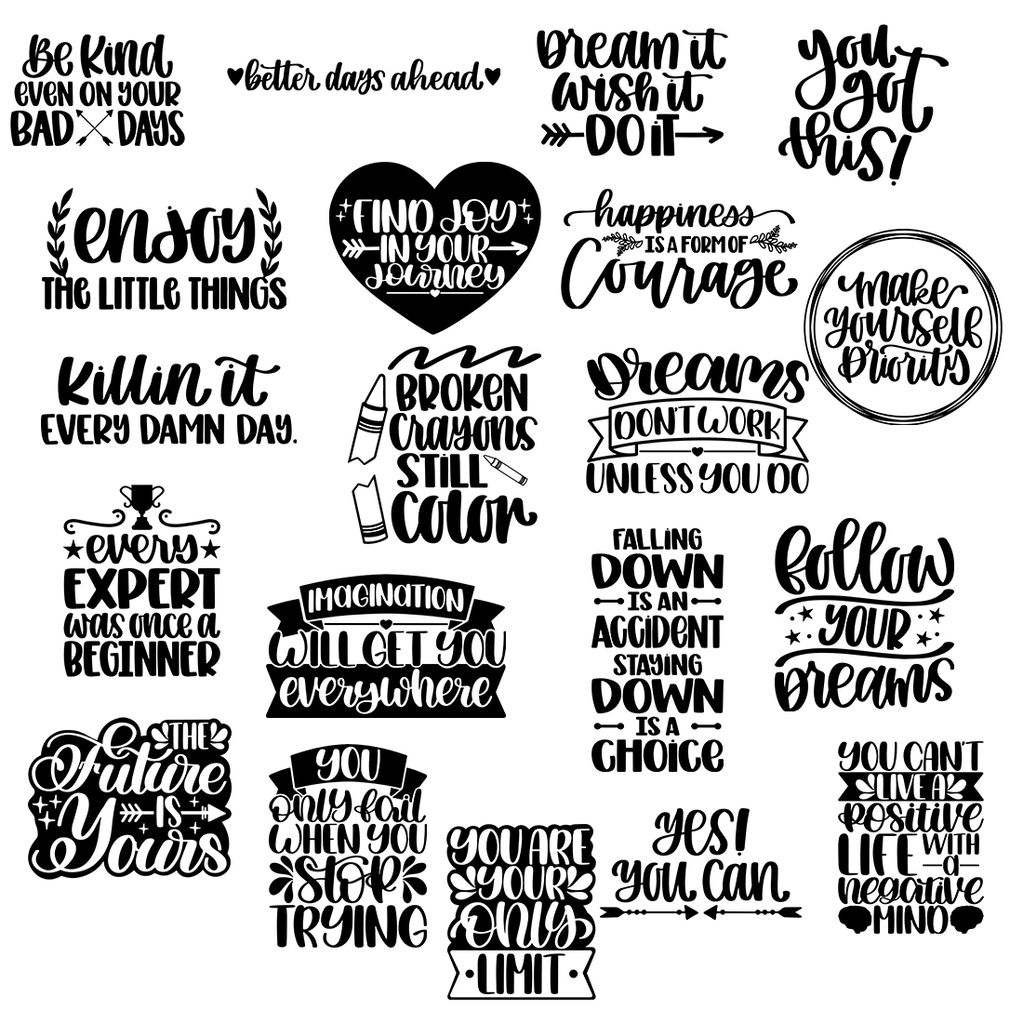 Be Kind
EVEN ON YOUR
BAD DAYS
better days ahead
Dream it
wish it
DO iT
you
got
this!
enjoy
THE LITTLE THINGS
FIND JOY
IN YOUR
JOURNEY
happiness
IS A FORM OF
Courage
make
yourself
priority
Killin it
EVERY DAMN DAY.
BROKEN
Crayons
STILL
Color
Dreams
DON'T WORK
UNLESS YOU DO
every
EXPERT
was once a
BEGINNER
IMAGINATION
WILL GET YOU
everywhere
FALLING
DOWN
IS AN
ACCIDENT
STAYING
DOWN
IS A
CHOICE
follow
YOUR
Dreams
THE
Future
IS
Yours
YOU
only fail
WHEN YOU
STOP
TRYING
YOU ARE
YOUR
only
LIMIT
yes!
you can
YOU CAN'T
LIVE A
Positive
LIFE WITH
a
negative
MIND